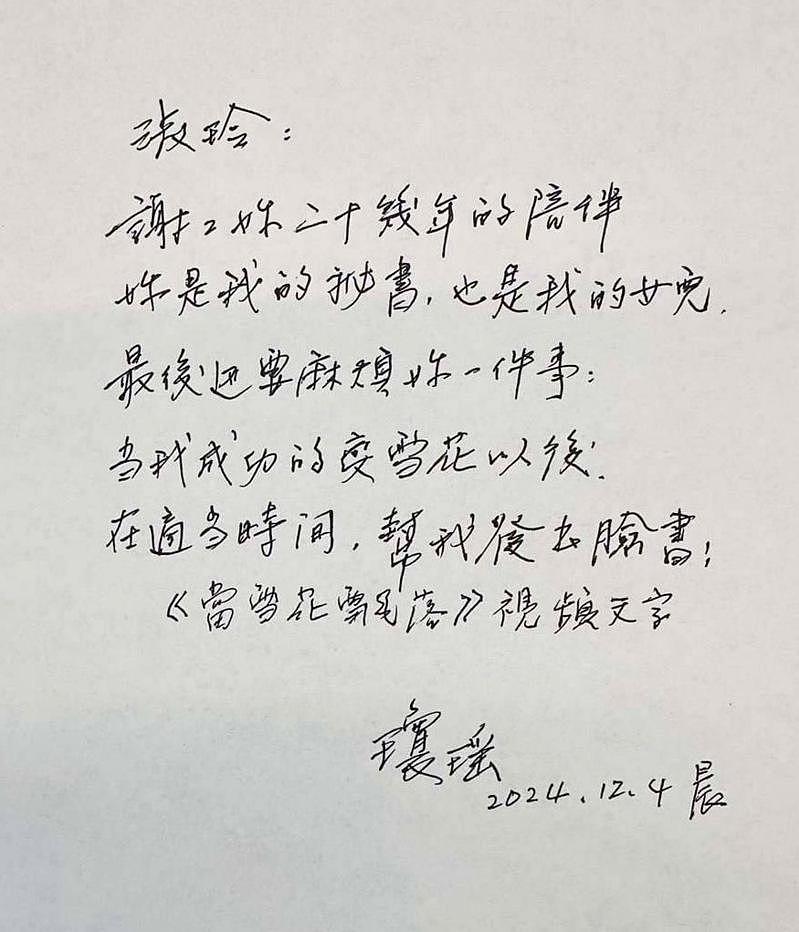 淑玲：
謝謝妳二十幾年的陪伴
妳是我的秘書，也是我的女兒，
最後还要麻煩妳一件事：
当我成功的变雪花以後，
在適当時间，幫我發出臉書；
《當雪花飄落》視頻文字
瓊瑤
2024.12.4 晨